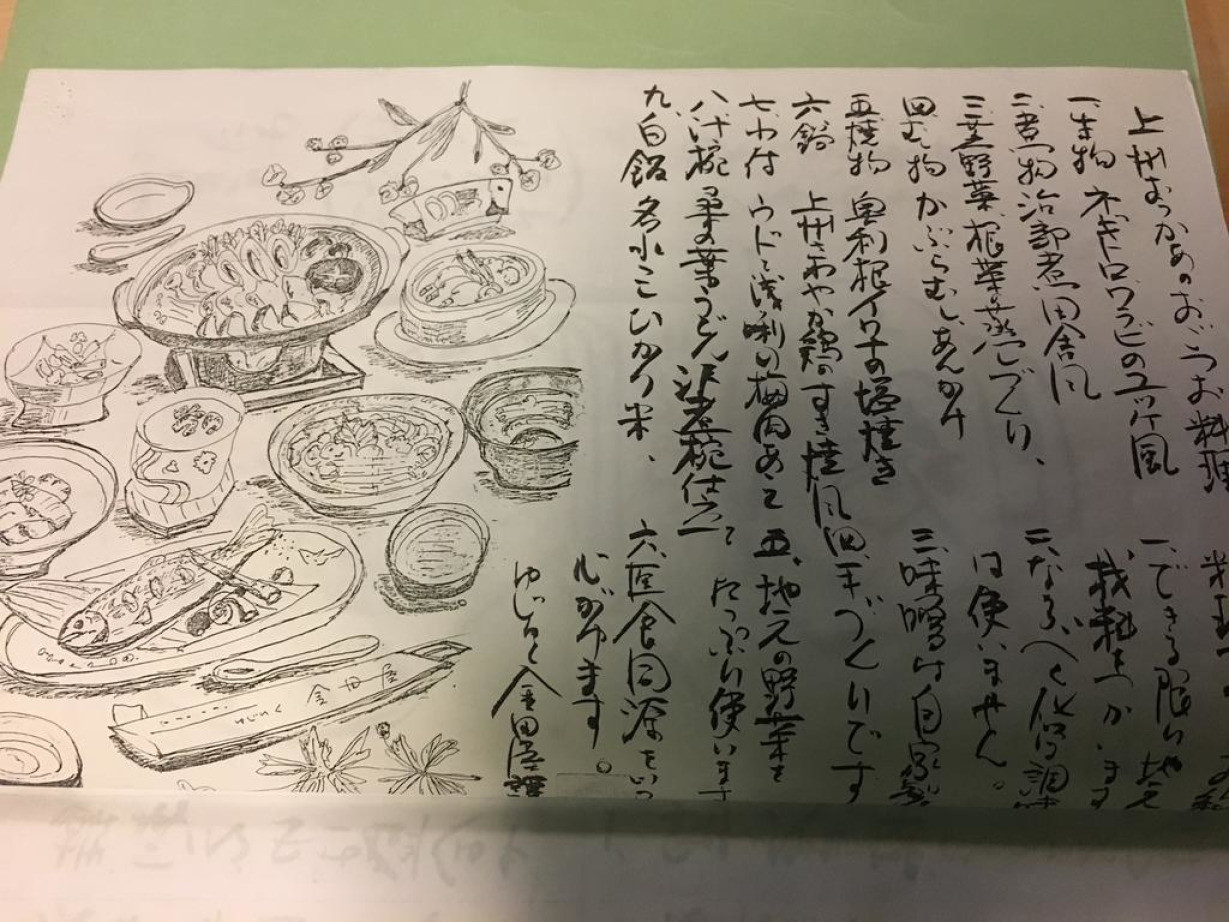 上州おっかあのおごっつお料理
一、生物 ネギトロワラビのユッケ風
二、煮物 治部煮田舎風
三、蒸野菜 根菜の蒸しづくり、
四、む物 かぶらむしあんかけ
五、焼物 奥利根イワナの塩焼き
六、鍋 上州さわやか鶏のすき焼風
七、小付 ウドと浅蜊の梅肉あえ
八、汁椀 桑の葉うどん 沢煮椀仕立て
九、白飯 名水こしひかり米、
一、できる限り地元
栽培をつかいます
二、なるべく化学調味
は使いません。
三、味噌は自家製
四、手づくりです
五、地元の野菜を
たっぷり使います
六、医食同源をいつ
心がけます。
ゆじゅく金田屋
ゆじゅく 金田屋